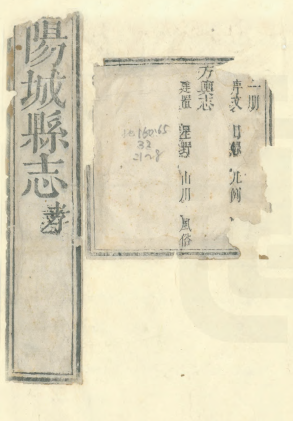 陽城縣志
一册
序文 目錄 凡例
方輿志
建置 星野 山川 風俗
160.65
32
21-28